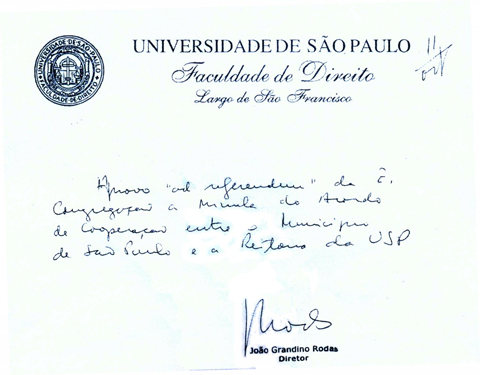 UNIVERSIDADE DE SÃO PAULO
Faculdade de Direito
Largo de São Francisco
UNIVERSIDADE DE SÃO PAULO
FACULDADE DE DIREITO
11/
out
Aprovo "ad referendum" da E.
Congregação a Minuta do Acordo
de Cooperação entre o Município
de São Paulo e a Reitoria da USP
João Grandino Rodas
Diretor